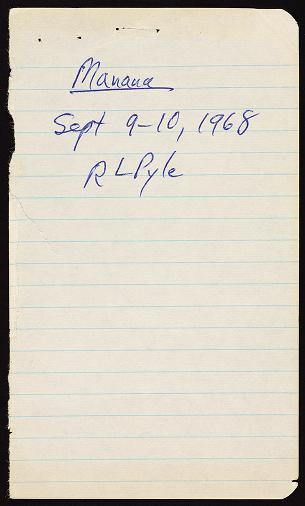 Manana
Sept 9-10, 1968
R L Pyle